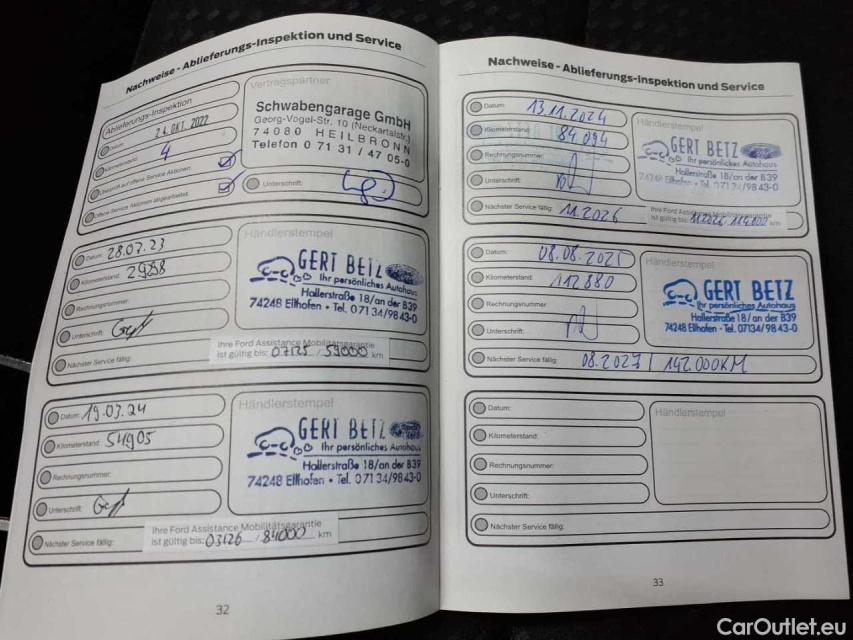 Nachweise - Ablieferungs-Inspektion und Service
Ablieferungs-Inspektion
Datum: 24. OKT. 2022
Kilometerstand: 4
Überprüft auf offene Service Aktionen:
offene Service Aktionen abgearbeitet:
Vertragspartner
Schwabengarage GmbH
Georg-Vogel-Str. 10 (Neckartalstr.)
74080 HEILBRONN
Telefon 0 71 31 / 47 05-0
Unterschrift:
Datum: 28.07.23
Kilometerstand: 29888
Rechnungsnummer:
Unterschrift:
Nächster Service fällig:
Händlerstempel
GERT BETZ
Ihr persönliches Autohaus
Hallerstraße 18/an der B39
74248 Ellhofen • Tel. 07134/9843-0
Ihre Ford Assistance Mobilitätsgarantie
ist gültig bis: 07125 / 59000 km
Datum: 19.03.24
Kilometerstand: 54905
Rechnungsnummer:
Unterschrift:
Nächster Service fällig:
Händlerstempel
GERT BETZ
Ihr persönliches Autohaus
Hallerstraße 18/an der B39
74248 Ellhofen • Tel. 07134/9843-0
Ihre Ford Assistance Mobilitätsgarantie
ist gültig bis: 03126 / 84000 km
32
Nachweise - Ablieferungs-Inspektion und Service
Datum: 13.11.2024
Kilometerstand: 84.094
Rechnungsnummer:
Unterschrift:
Nächster Service fällig: 11.2026
Händlerstempel
GERT BETZ
Ihr persönliches Autohaus
Hallerstraße 18/an der B39
74248 Ellhofen • Tel. 07134/9843-0
Ihre Ford Assistance Mobilitätsgarantie
ist gültig bis: 11.2026 114.000 km
Datum: 08.08.2025
Kilometerstand: 112880
Rechnungsnummer:
Unterschrift:
Nächster Service fällig: 08.2027 | 142.000KM
Händlerstempel
GERT BETZ
Ihr persönliches Autohaus
Hallerstraße 18/an der B39
74248 Ellhofen • Tel. 07134/9843-0
Datum:
Kilometerstand:
Rechnungsnummer:
Unterschrift:
Nächster Service fällig:
Händlerstempel
33
CarOutlet.eu